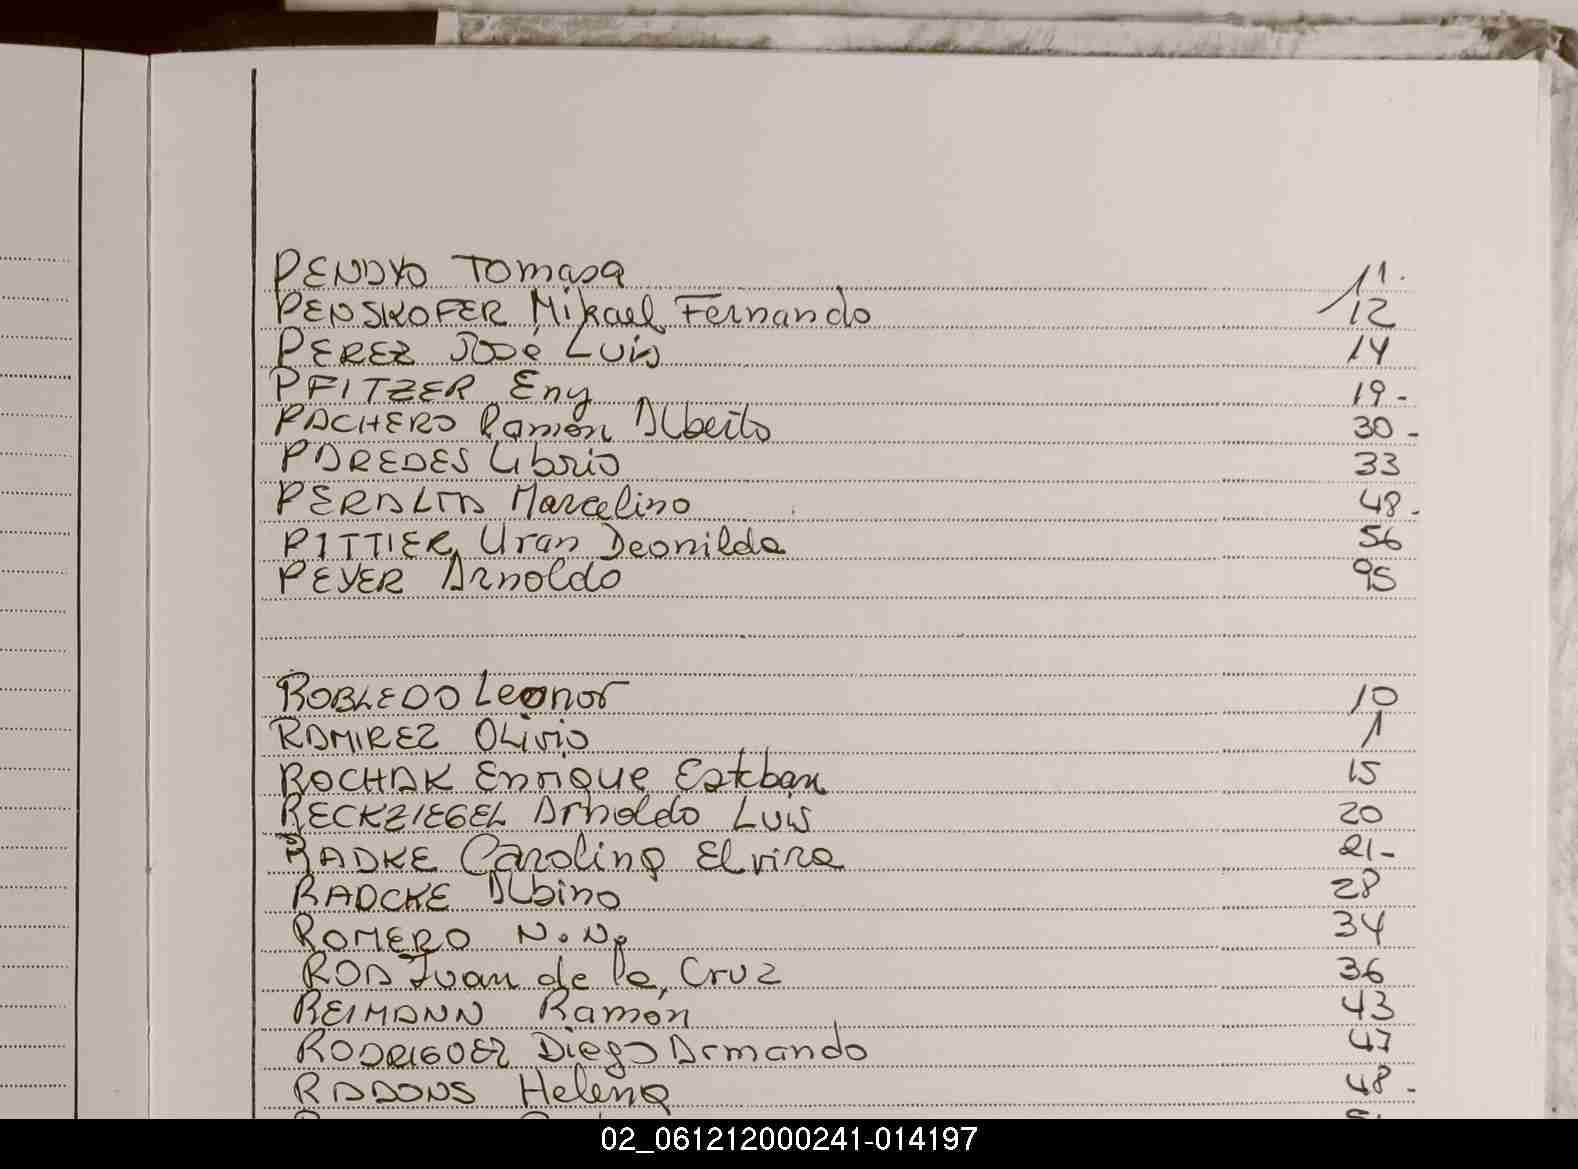 PENDYO Tomasa 11.
PENSKOFER Mikael Fernando 12
PEREZ José Luis 14
PFITZER Eny 19-
PACHERO Ramón Alberto 30-
PAREDES Librio 33
PERALTA Marcelino 48-
PITTIER, Uran Deonilda 56
PEYER Arnoldo 95
ROBLEDO Leonor 10
RAMIREZ Olivio 1
ROCHAK Enrique Esteban 15
RECKZIEGEL Arnoldo Luis 20
RADKE Carolina Elvira 21-
RADCKE Albino 28
ROMERO N.N. 34
ROA Juan de la Cruz 36
REIMANN Ramón 43
RODRIGUEZ Diego Armando 47
RADONS Helena 48-
02_061212000241-014197